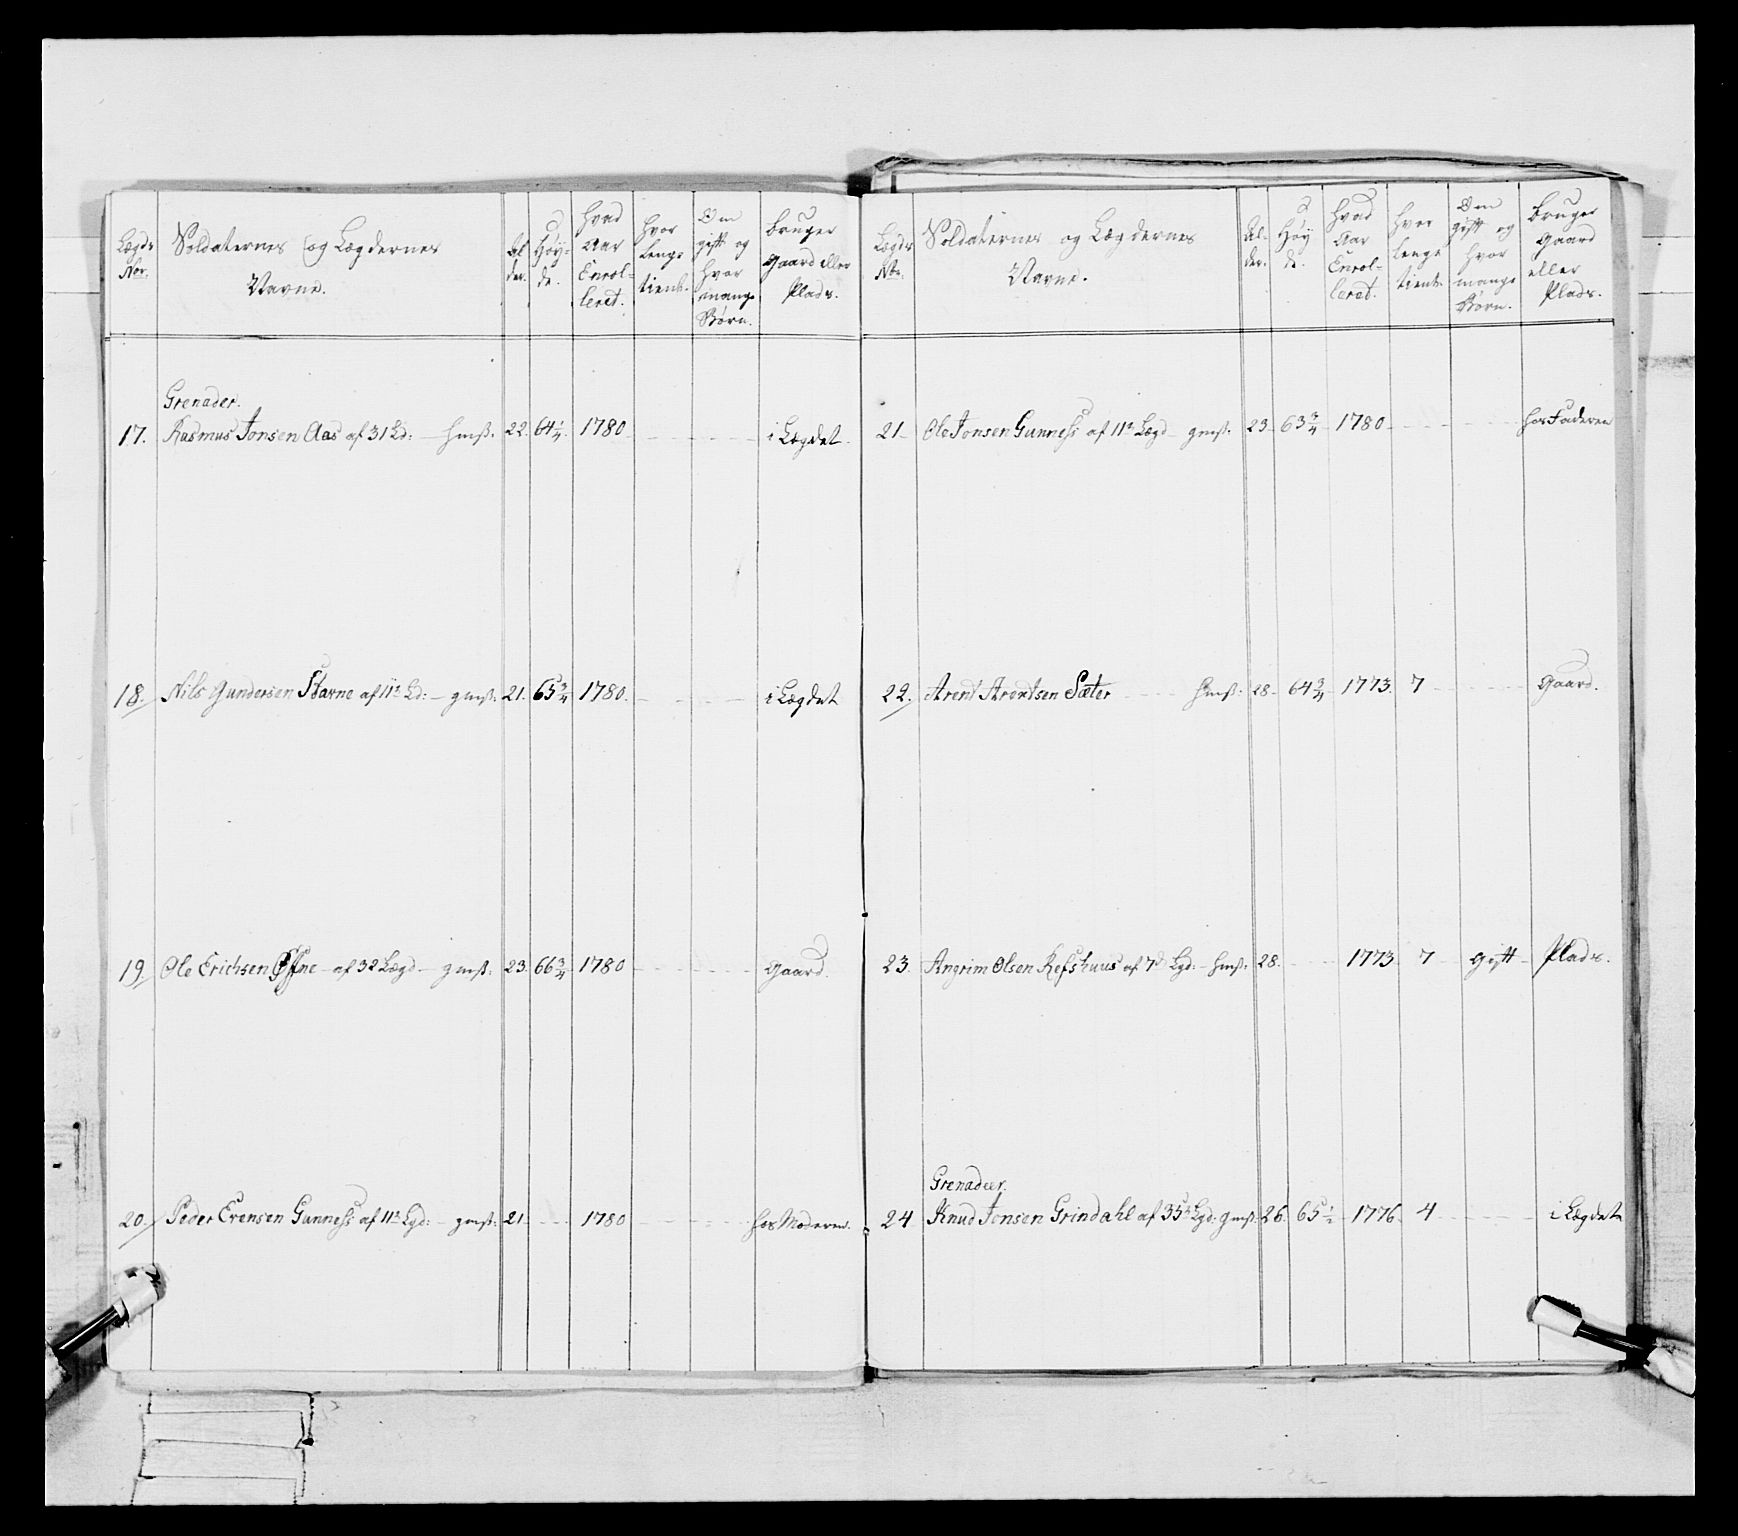 Lægds Nor.
Soldaternes og Lægdernes Navne.
Al der.
Høy- de.
Hvad Aar Enrol- leret.
Hvor lenge tient.
Om gift og hvor mange Børn.
bruger Gaard eller Plads.
Grenader.
17. Rasmus Jonsen Aas af 31 Ld: - 22. 64¼ 1780 - - - i Lægdet
18. Nils Gundersen Starne af 11te Ld: - 21. 65¾ 1780. - - - i Lægdet
19. Ole Erichsen - af 32 Lægd - 23. 66¾ 1780 - - - Gaard.
20. Peder Evensen Gunness af 11te Lgd: - 21. - - 1780 - - - hos Moderen.
Lægds Nr.
Soldaternes og Lægdernes Navne.
Al- der.
Høy de.
Hvad Aar Enrol- leret.
hvor lenge tient.
Om gift og hvor mange Børn.
bruger Gaard eller Plads.
21. Ole Jonsen Gunness af 11te Lægd - 23. 63¾ 1780 - - - hos Faderen
22. Arent Arentsen Sæter - - - 28. 64¾ 1773. 7 - - - Gaard.
23. Angrim Olsen Refshuus af 7d Lgd: - 28. - - 1773. 7 - gift - Plads.
Grenadeer.
24. Knud Jonsen Grindahl af 35te Lgd: 26. 65½ 1776. 4 - - - i Lægdet